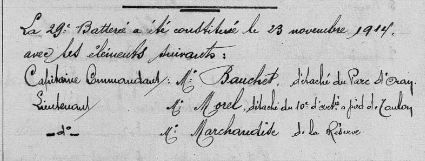 La 29e Batterie a été constituée le 23 novembre 1914.
avec les éléments suivants :
Capitaine Commandant : Mr. Bauchet, détaché du Parc d'Oran.
Lieutenant Mr. Morel, détaché du 10e d'art. à pied de Toulon
-d°- Mr. Marchandise de la Réserve